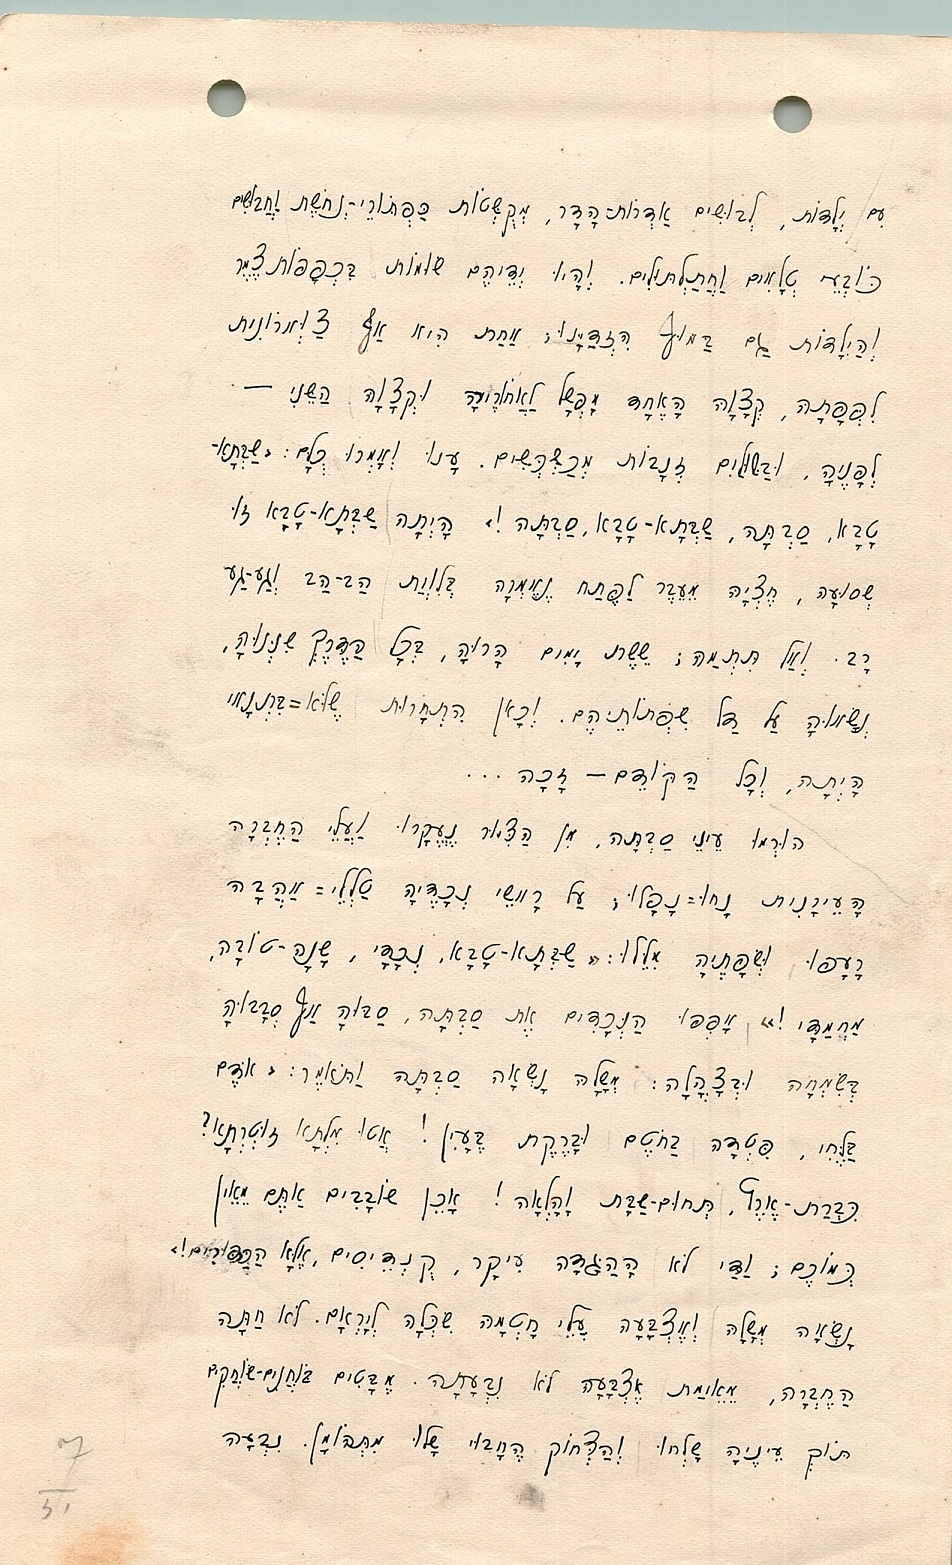 עִם יְלָדוֹת, לְבוּשִׁים אַדְרוֹת-הָדָר, מְקֻשָּׁטוֹת כַּפְתּוֹרֵי-נְחֹשֶׁת וַחֲבוּשִׁים
כּוֹבְעֵי טְלָאִים וַחֲתַלְתּוּלִים. וְהָיוּ יְדֵיהֶם שׂוּמוֹת בִּכְפָפוֹת צֶמֶר
וְהַיְלָדוֹת גַּם בְּמוּךְ הִזְדַּיָּנוּ; אַחַת הִיא אַף צַוְּארוֹנִית
לִפְּפָתָה, קְצָוָהּ הָאֶחָד מֻפְשָׁל לַאֲחוֹרֶיהָ וּקְצָוָהּ הַשֵּׁנִי —
לְפָנֶיהָ, וּבַשּׁוּלַיִם זְנָבוֹת מְכַשְׁכְּשִׁים. עָנוּ וְאָמְרוּ כֻלָּם: «שַׁבְּתָא-
טָבָא, סַבְתָּה, שַׁבְּתָא-טָבָא, סַבְתָּה!» הָיְתָה שַׁבְּתָא-טָבָא זוֹ
שְׁסוּעָה, חֶצְיָהּ מֵעֵבֶר לַפֶּתַח נֶאֱמְרָה בִּלְוַית הַב-הַב וְגַע-גַּע
רָב. וְאַל תִּתְמַהּ; שֵׁשֶׁת יָמִים הָרוּהָ, בְּכָל הַדֶּרֶךְ שִׁנְּנוּהָ,
נְשָׂאוּהָ עַל דַּל שִׂפְתוֹתֵיהֶם. וְכָאן הִתְחָרוּת שֶׁלֹּא=בִּתְנָאִי
הָיְתָה, וְכָל הַקּוֹדֵם — זָכָה ...
הוּרְמוּ עֵינֵי סַבְתָּה, מִן הַצִּיּוּר נֶעֶקְרוּ וַעֲלֵי הַחֶבְרָה
הָעֵירָנִית נָחוּ=נָפָלוּ; עַל רָאשֵׁי נְכָדֶיהָ טַלְלֵי=אַהֲבָה
רָעָפוּ וּשְׂפָתֶיהָ מִלֵּלוּ: «שַׁבְּתָא-טָבָא, נְכָדַי, שָׁנָה-טוֹבָה,
מַחֲמַדַּי!» אָפְפוּ הַנְּכָדִים אֶת סַבְתָּה, סַבּוּהָ אַף סְבָבוּהָ
בְּשִׂמְחָה וּבְצָהֳלָה: מְשָׁלָהּ נָשְׂאָה סַבְתָּה וַתֹּאמֶר: «אֹדֶם
בַּלֶּחִי, פִּטְדָה בַּחֹטֶם וּבָרֶקֶת בָּעָיִן! אֲטוּ מִלְּתָא זוּטַרְתָּא?
כִּבְרַת-אֶרֶץ, תְּחוּם-שַׁבָּת וָהָלְאָה! אָכֵן שׁוֹבָבִים אַתֶּם מֵאֵין
כְּמוֹכֶם; וַדַּי לֹא הַהַגָּדָה עִיקָר, קֻנְדֵּיסִים, אֶלָּא הַכִּפּוּרִים!»
נָשְׂאָה מְשָׁלָהּ וְאֶצְבָּעָהּ עֲלֵי חָטְמָהּ שִׂכְּלָה לְיָרְאָם. לֹא חַתָּה
הַחֶבְרָה, מֵאֵימַת אֶצְבָּעָהּ לֹא נִבְעָתָה. מַבָּטִים בּוֹחֲנִים-שׂוֹחֲקִים
תּוֹךְ עֵינֶיהָ שָׁלְחוּ וְהַצְּחוֹק הֶחָבוּי שָׁלוּ מִתְּהוֹמָן. נִבְעָה